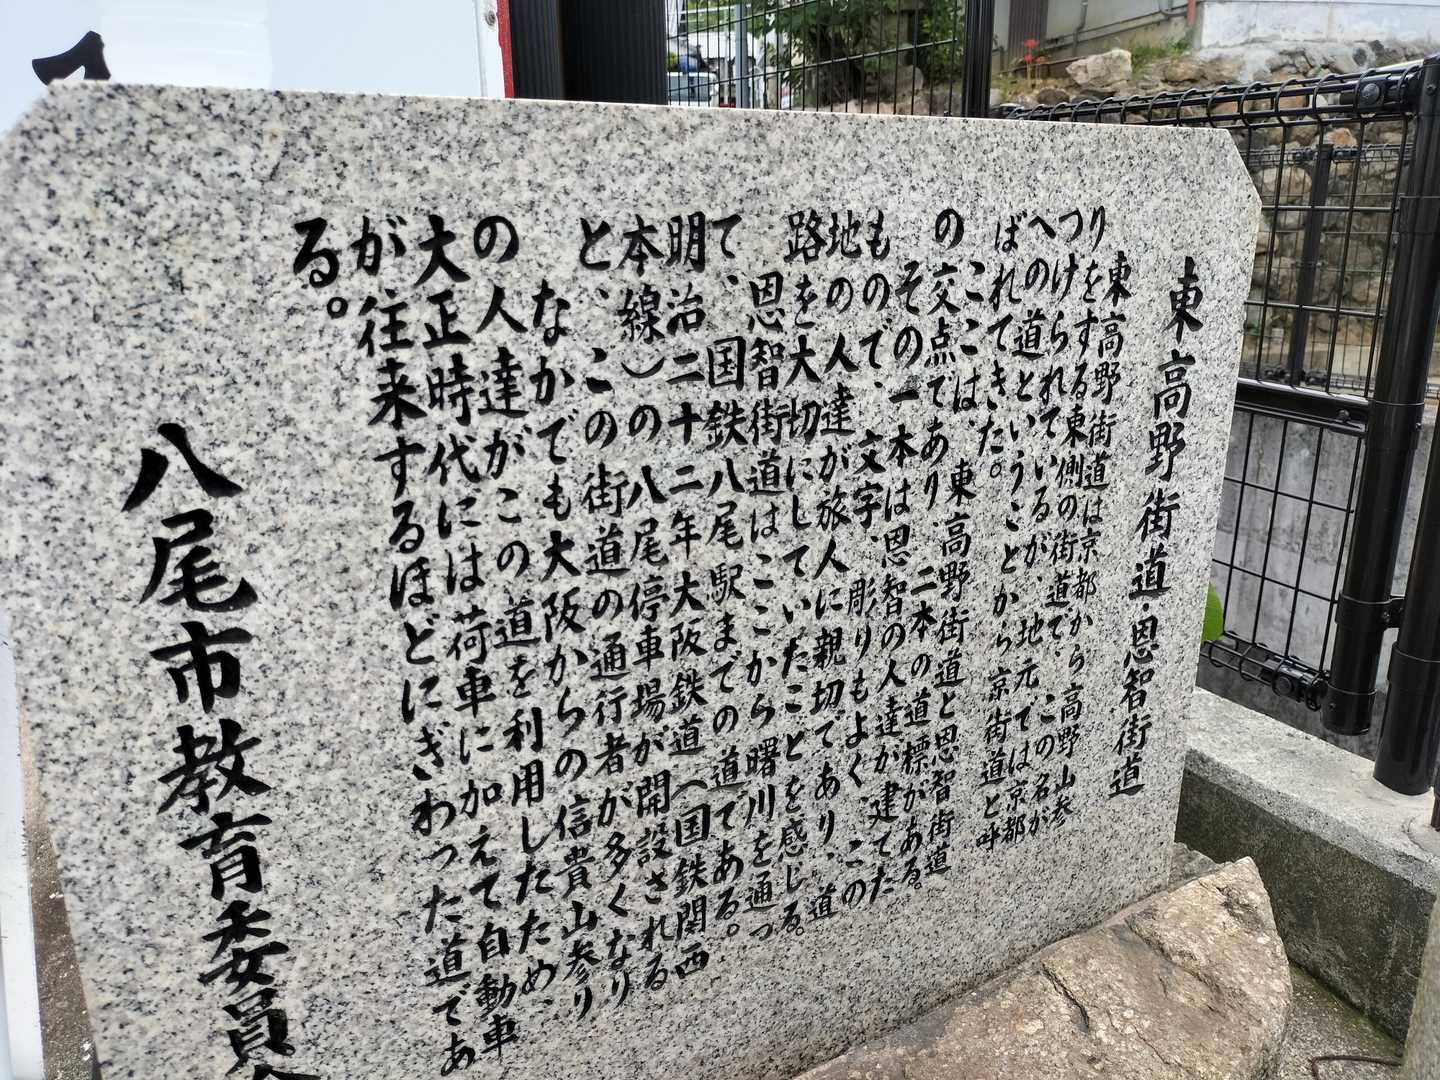 東高野街道・恩智街道
東高野街道は京都から高野山参
りをする東側の街道で、この名が
つけられているが、地元では京都
への道ということから京街道と呼
ばれてきた。
ここは、東高野街道と恩智街道
の交点であり、二本の道標がある。
その一本は恩智の人達が建てた
もので、文字、彫りもよく、この
地の人達が旅人に親切であり、道
路を大切にしていたことを感じる。
恩智街道はここから曙川を通っ
て、国鉄八尾駅までの道である。
明治二十二年大阪鉄道（国鉄関西
本線）の八尾停車場が開設される
と、この街道の通行者が多くなり
なかでも大阪からの信貴山参り
の人達がこの道を利用したため、
大正時代には荷車に加えて自動車
が、往来するほどにぎわった道であ
る。
八尾市教育委員会